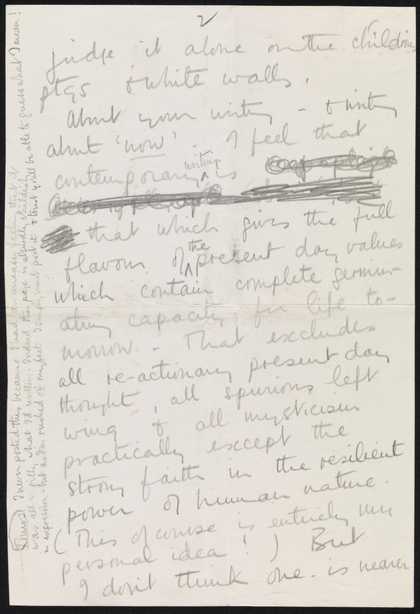 2
judge it alone on the children's
ptgs & white walls.
About your writing - & writing
about 'now'. I feel that
contemporary writing is
that which gives the full
flavour of the present day values
which contain complete germin-
ating capacity for life to-
morrow. That excludes
all re-actionary present day
thought, all spurious left
wing & all mysticism
practically except the
strong faith in the resilient
power of human nature.
(This of course is entirely my
personal idea!) But
I don't think one is nearer
I never posted this because I had an uneasy feeling that it
was all a silly